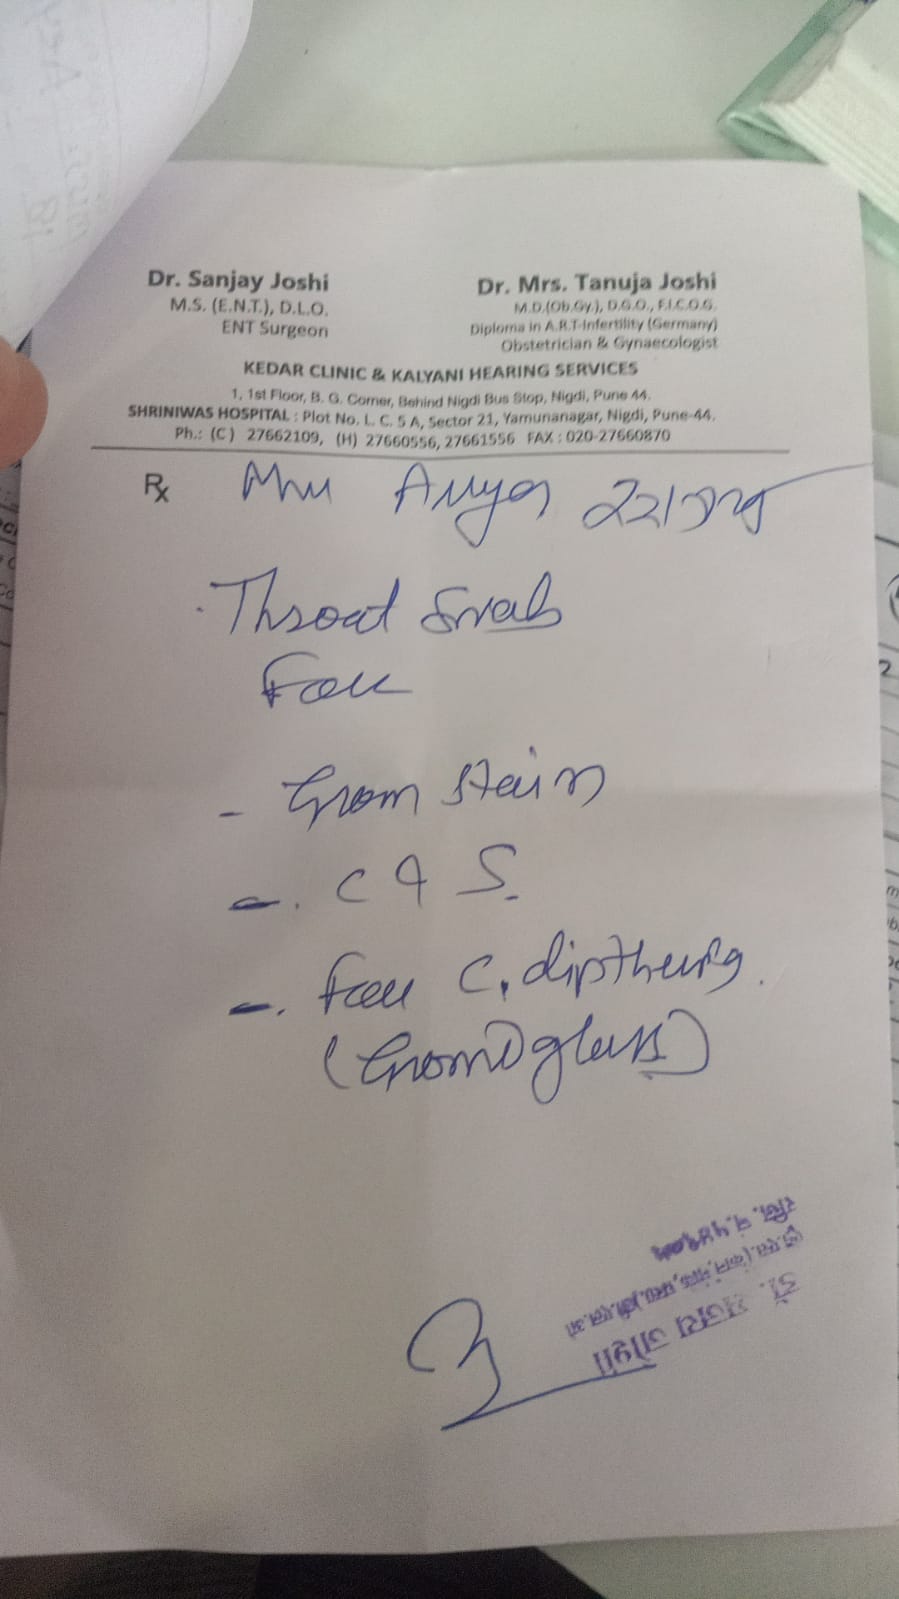 Dr. Sanjay Joshi
M.S. (E.N.T.), D.L.O.
ENT Surgeon
Dr. Mrs. Tanuja Joshi
M.D.(Ob.Gy.), D.G.O., F.I.C.O.G.
Diploma in A.R.T-Infertility (Germany)
Obstetrician & Gynaecologist
KEDAR CLINIC & KALYANI HEARING SERVICES
1, 1st Floor, B. G. Corner, Behind Nigdi Bus Stop, Nigdi, Pune 44.
SHRINIWAS HOSPITAL : Plot No. L. C. 5 A, Sector 21, Yamunanagar, Nigdi, Pune-44.
Ph.: (C) 27662109, (H) 27660556, 27661556 FAX : 020-27660870
Rx
Throat Swab
For
- Gram stain
- C & S.
- For C. diptheria.
डॉ. संजय जोशी